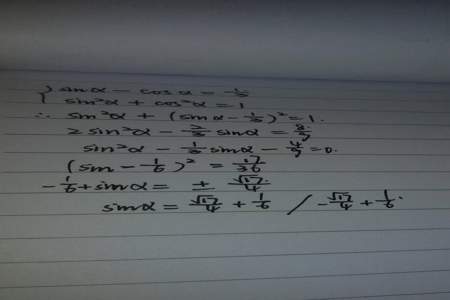 { sinα - cosα = 1/3
{ sin²α + cos²α = 1
∴ sin²α + (sinα - 1/3)² = 1.
2 sin²α - 2/3 sinα = 8/9
sin²α - 1/3 sinα - 4/9 = 0.
(sin - 1/6)² = 17/36
-1/6 + sinα = ± √17/4
sinα = √17/4 + 1/6 / -√17/4 + 1/6.